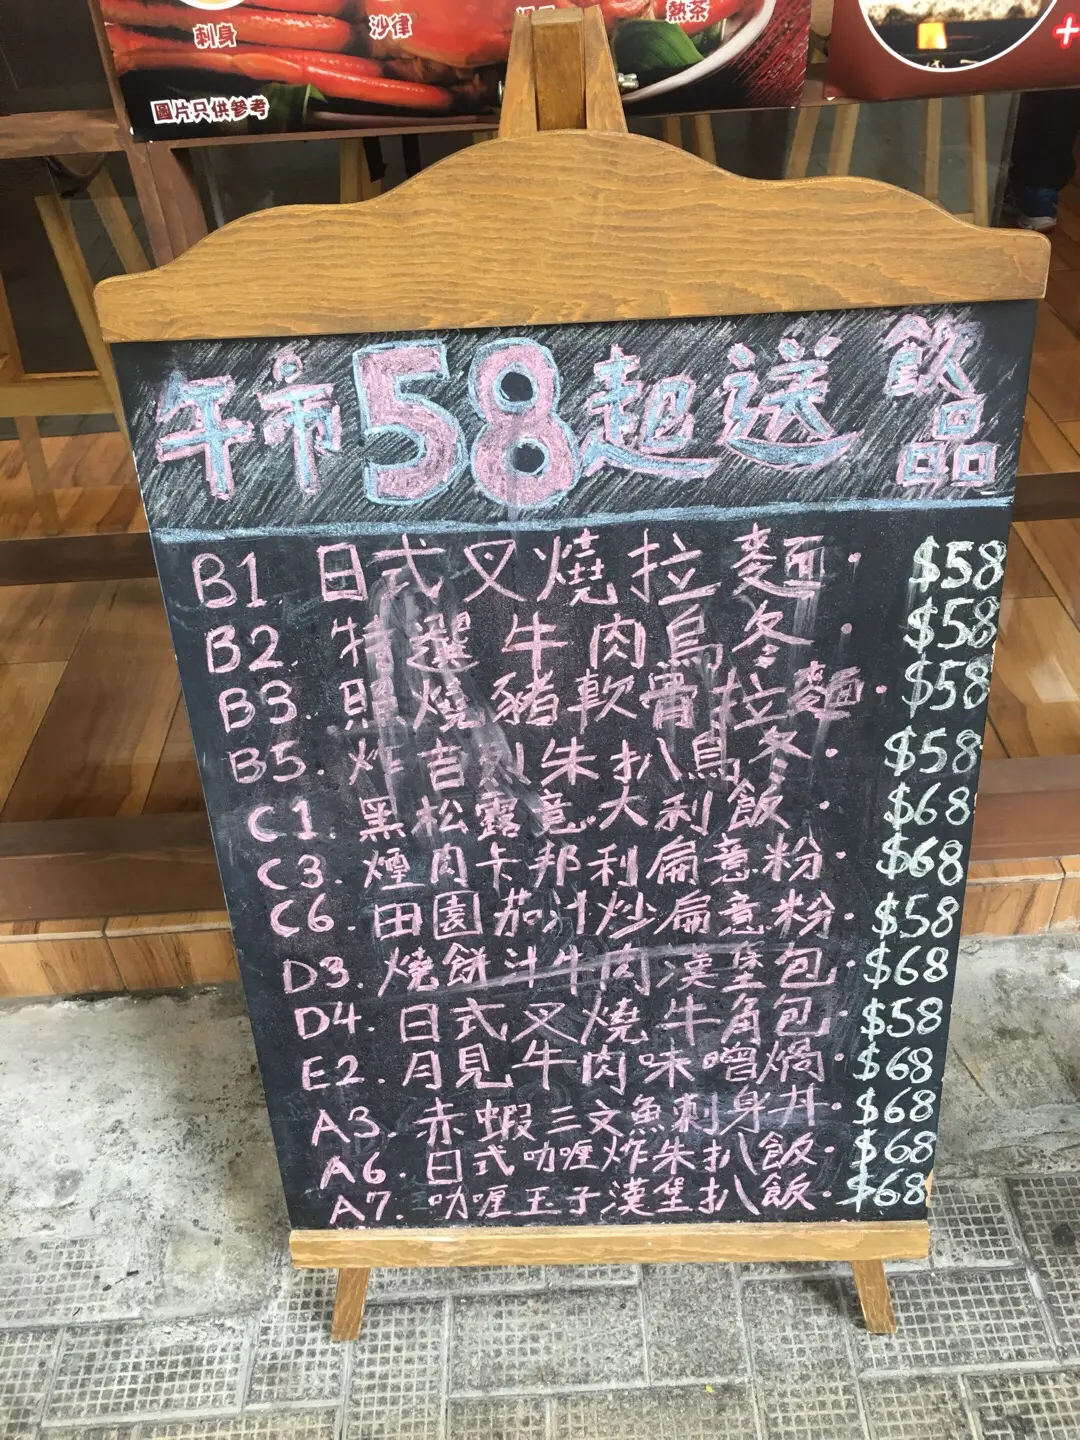 刺身
沙律
熱茶
圖片只供參考
午市58起送飲品
B1. 日式叉燒拉麵. $58
B2. 特選牛肉烏冬. $58
B3. 照燒豬軟骨拉麵. $58
B5. 炸吉列朱扒烏冬. $58
C1. 黑松露意大利飯. $68
C3. 煙肉卡邦利扁意粉. $68
C6. 田園茄汁炒扁意粉. $58
D3. 燒餅汁牛肉漢堡包. $68
D4. 日式叉燒牛角包. $58
E2. 月見牛肉味噌煱. $68
A3. 赤蝦三文魚刺身丼. $68
A6. 日式咖喱炸朱扒飯. $68
A7. 咖喱玉子漢堡扒飯. $68